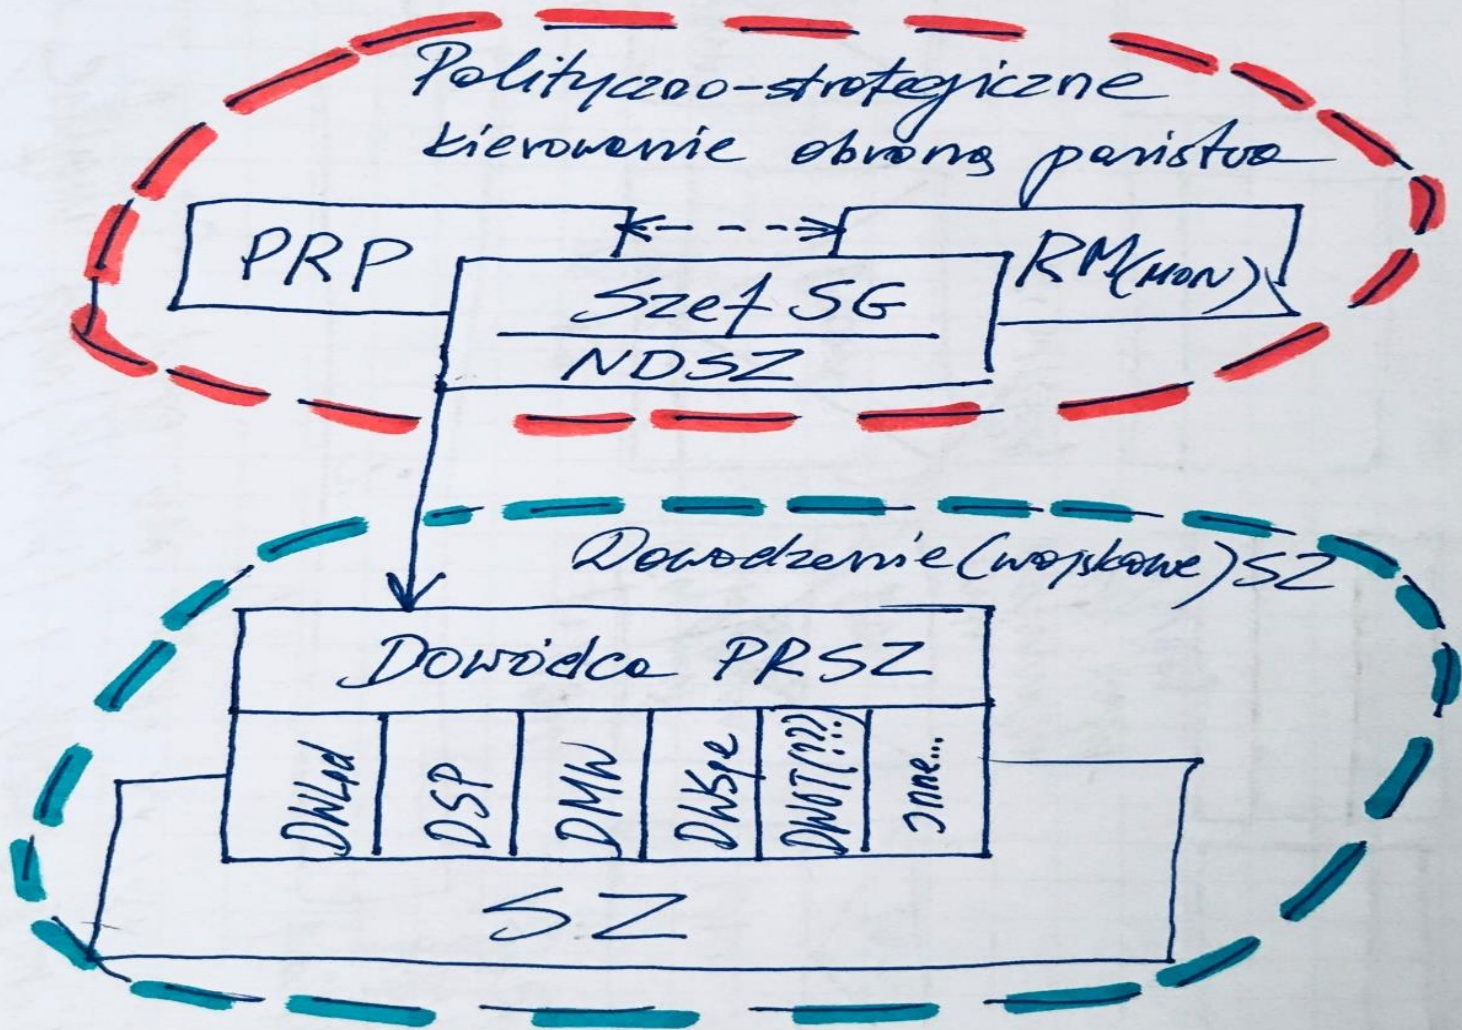 Polityczno-strategiczne
kierowanie obroną państwa
PRP
RM(MON)
Szef SG
NDSZ
Dowodzenie (wojskowe) SZ
Dowódca PRSZ
DWLąd
DSP
DMW
DWSpe
DWOT(???)
Inne...
SZ